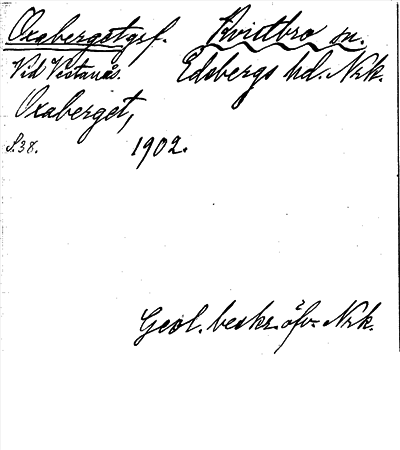 Oxabergetgrf. Kvistbro sn.
Vid Vistanäs. Edsbergs hd. Nrk.
Oxaberget,
S.38. 1902.
Geol. beskr. öfv. Nrk.